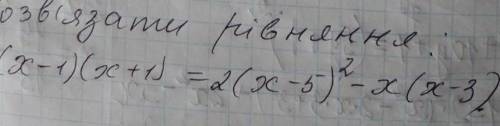 озв'язати рівняння:
(x-1)(x+1) = 2(x-5)²-x(x-3)